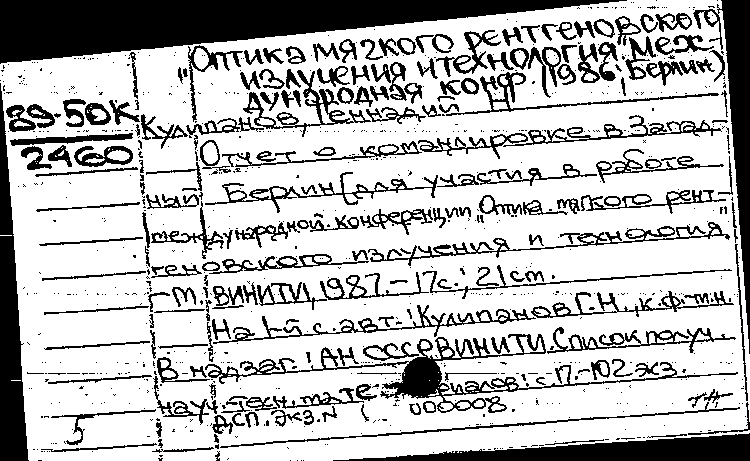 "Оптика мягкого рентгеновского
излучения и технология" Меж-
дународная конф. (1986; Берлин)
89-50К
2460
Кулипанов, Геннадий Н
Отчет о командировке в Запад-
ный Берлин [для участия в работе
международной конференции "Оптика мягкого рент-
геновского излучения и технология".
- М.: ВИНИТИ, 1987. - 17с.; 21 см.
На 1-й с. авт.: Кулипанов Г.Н., к.ф.-м.н.
В надзаг.: АН СССР ВИНИТИ. Список получ.
науч.-техн. мате риалов: с. 17. - 102 экз.
ДСП. Экз. N 000008.
5